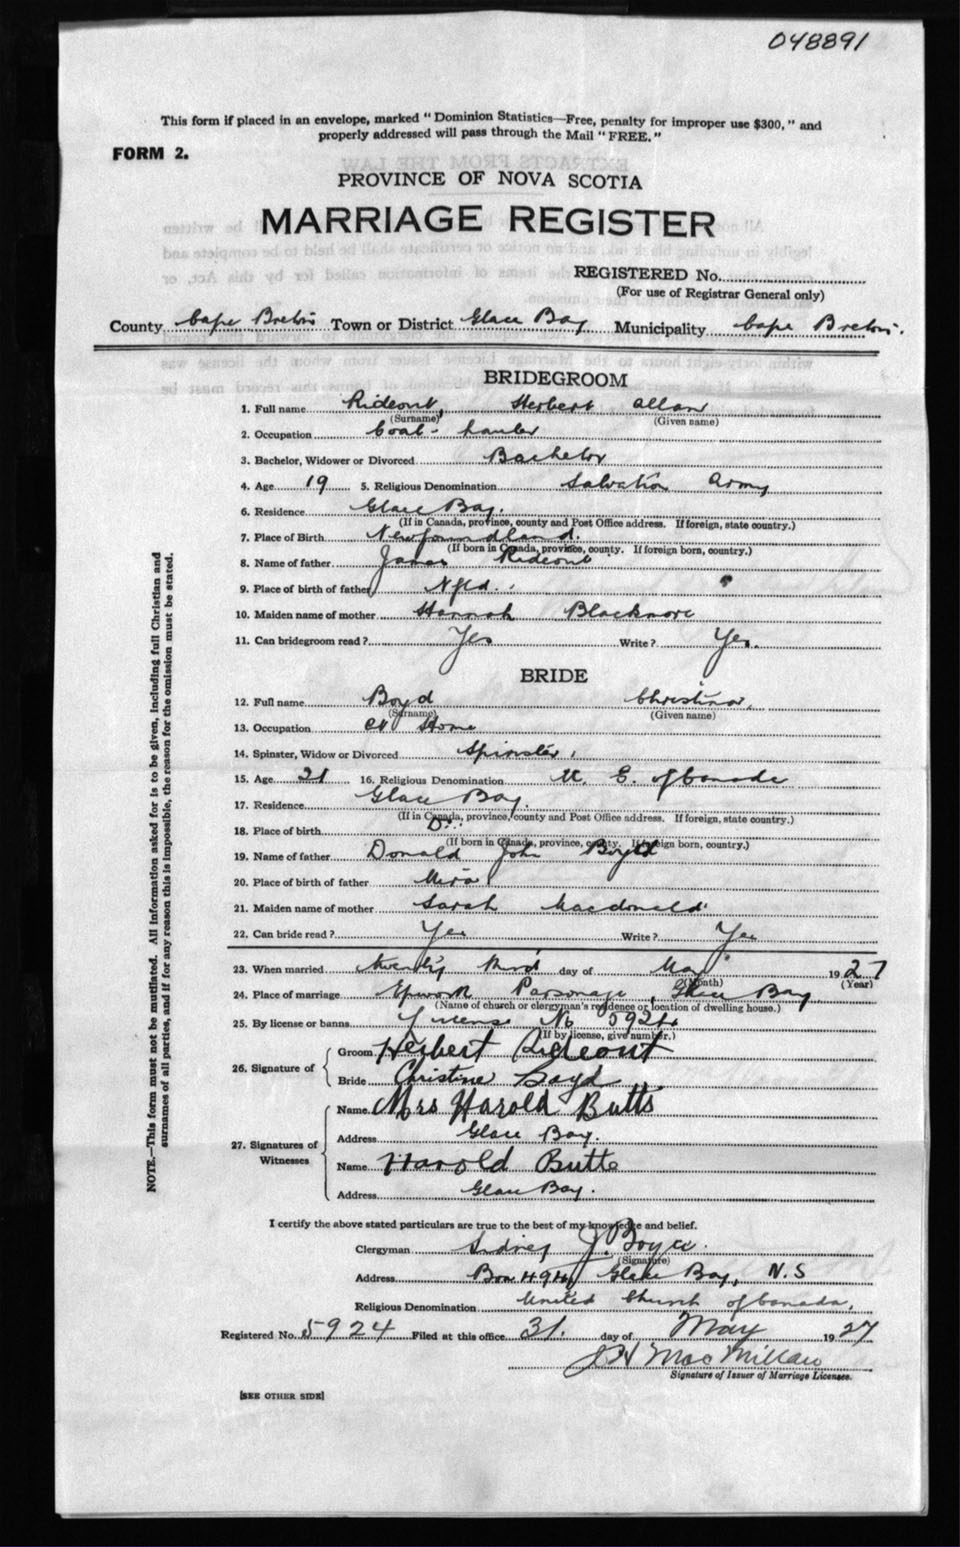 048891
This form if placed in an envelope, marked " Dominion Statistics—Free, penalty for improper use $300, " and
properly addressed will pass through the Mail " FREE. "
FORM 2.
PROVINCE OF NOVA SCOTIA
MARRIAGE REGISTER
REGISTERED No.
(For use of Registrar General only)
County Cape Breton Town or District Glace Bay Municipality Cape Breton.
BRIDEGROOM
1. Full name Rideout, Herbert Allan
(Surname) (Given name)
2. Occupation Coal-
3. Bachelor, Widower or Divorced Bachelor
4. Age 19 5. Religious Denomination Salvation Army
6. Residence Glace Bay.
(If in Canada, province, county and Post Office address. If foreign, state country.)
7. Place of Birth Newfoundland.
(If born in Canada, province, county. If foreign born, country.)
8. Name of father James Rideout
9. Place of birth of father Nfld.
10. Maiden name of mother Hannah Blackmore
11. Can bridegroom read? Yes Write? Yes.
BRIDE
12. Full name Boyd Christina,
(Surname) (Given name)
13. Occupation At Home
14. Spinster, Widow or Divorced Spinster.
15. Age 21 16. Religious Denomination U. C. of Canada
17. Residence Glace Bay.
(If in Canada, province, county and Post Office address. If foreign, state country.)
18. Place of birth Do.
(If born in Canada, province, county. If foreign born, country.)
19. Name of father Donald John Boyd
20. Place of birth of father Mira
21. Maiden name of mother Sarah Macdonald
22. Can bride read? Yes Write? Yes
23. When married Twenty third day of May 1927
(Month) (Year)
24. Place of marriage Epworth Parsonage, Glace Bay
(Name of church or clergyman's residence or location of dwelling house.)
25. By license or banns License No 5924
(If by license, give number.)
26. Signature of Groom Herbert Rideout
Bride Christine Boyd
27. Signatures of Witnesses Name Mrs Harold Butts
Address Glace Bay.
Name Harold Butts
Address Glace Bay.
I certify the above stated particulars are true to the best of my knowledge and belief.
Clergyman Sidney J. Boyce.
(Signature)
Address Box 494 Glace Bay, N.S
Religious Denomination United Church of Canada,
Registered No. 5924 Filed at this office 31. day of May 1927
J H MacMillan
Signature of Issuer of Marriage Licenses.
[SEE OTHER SIDE]
NOTE.—This form must not be mutilated. All information asked for is to be given, including full Christian and
surnames of all parties, and if for any reason this is impossible, the reason for the omission must be stated.